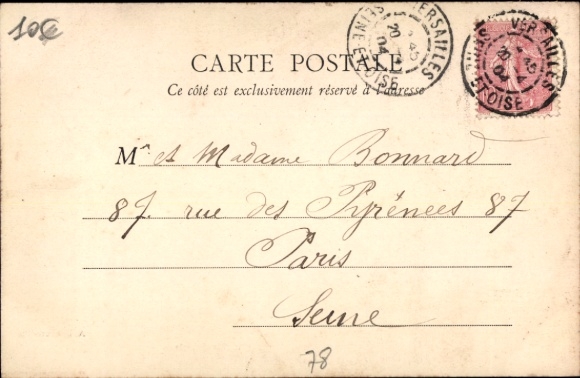 10€
VERSAILLES
SEINE ET OISE
VERSAILLES
CARTE POSTALE
Ce côté est exclusivement réservé à l'adresse
Mr et Madame Bonnard
87. rue des Pyrénées 87
Paris
Seine
78